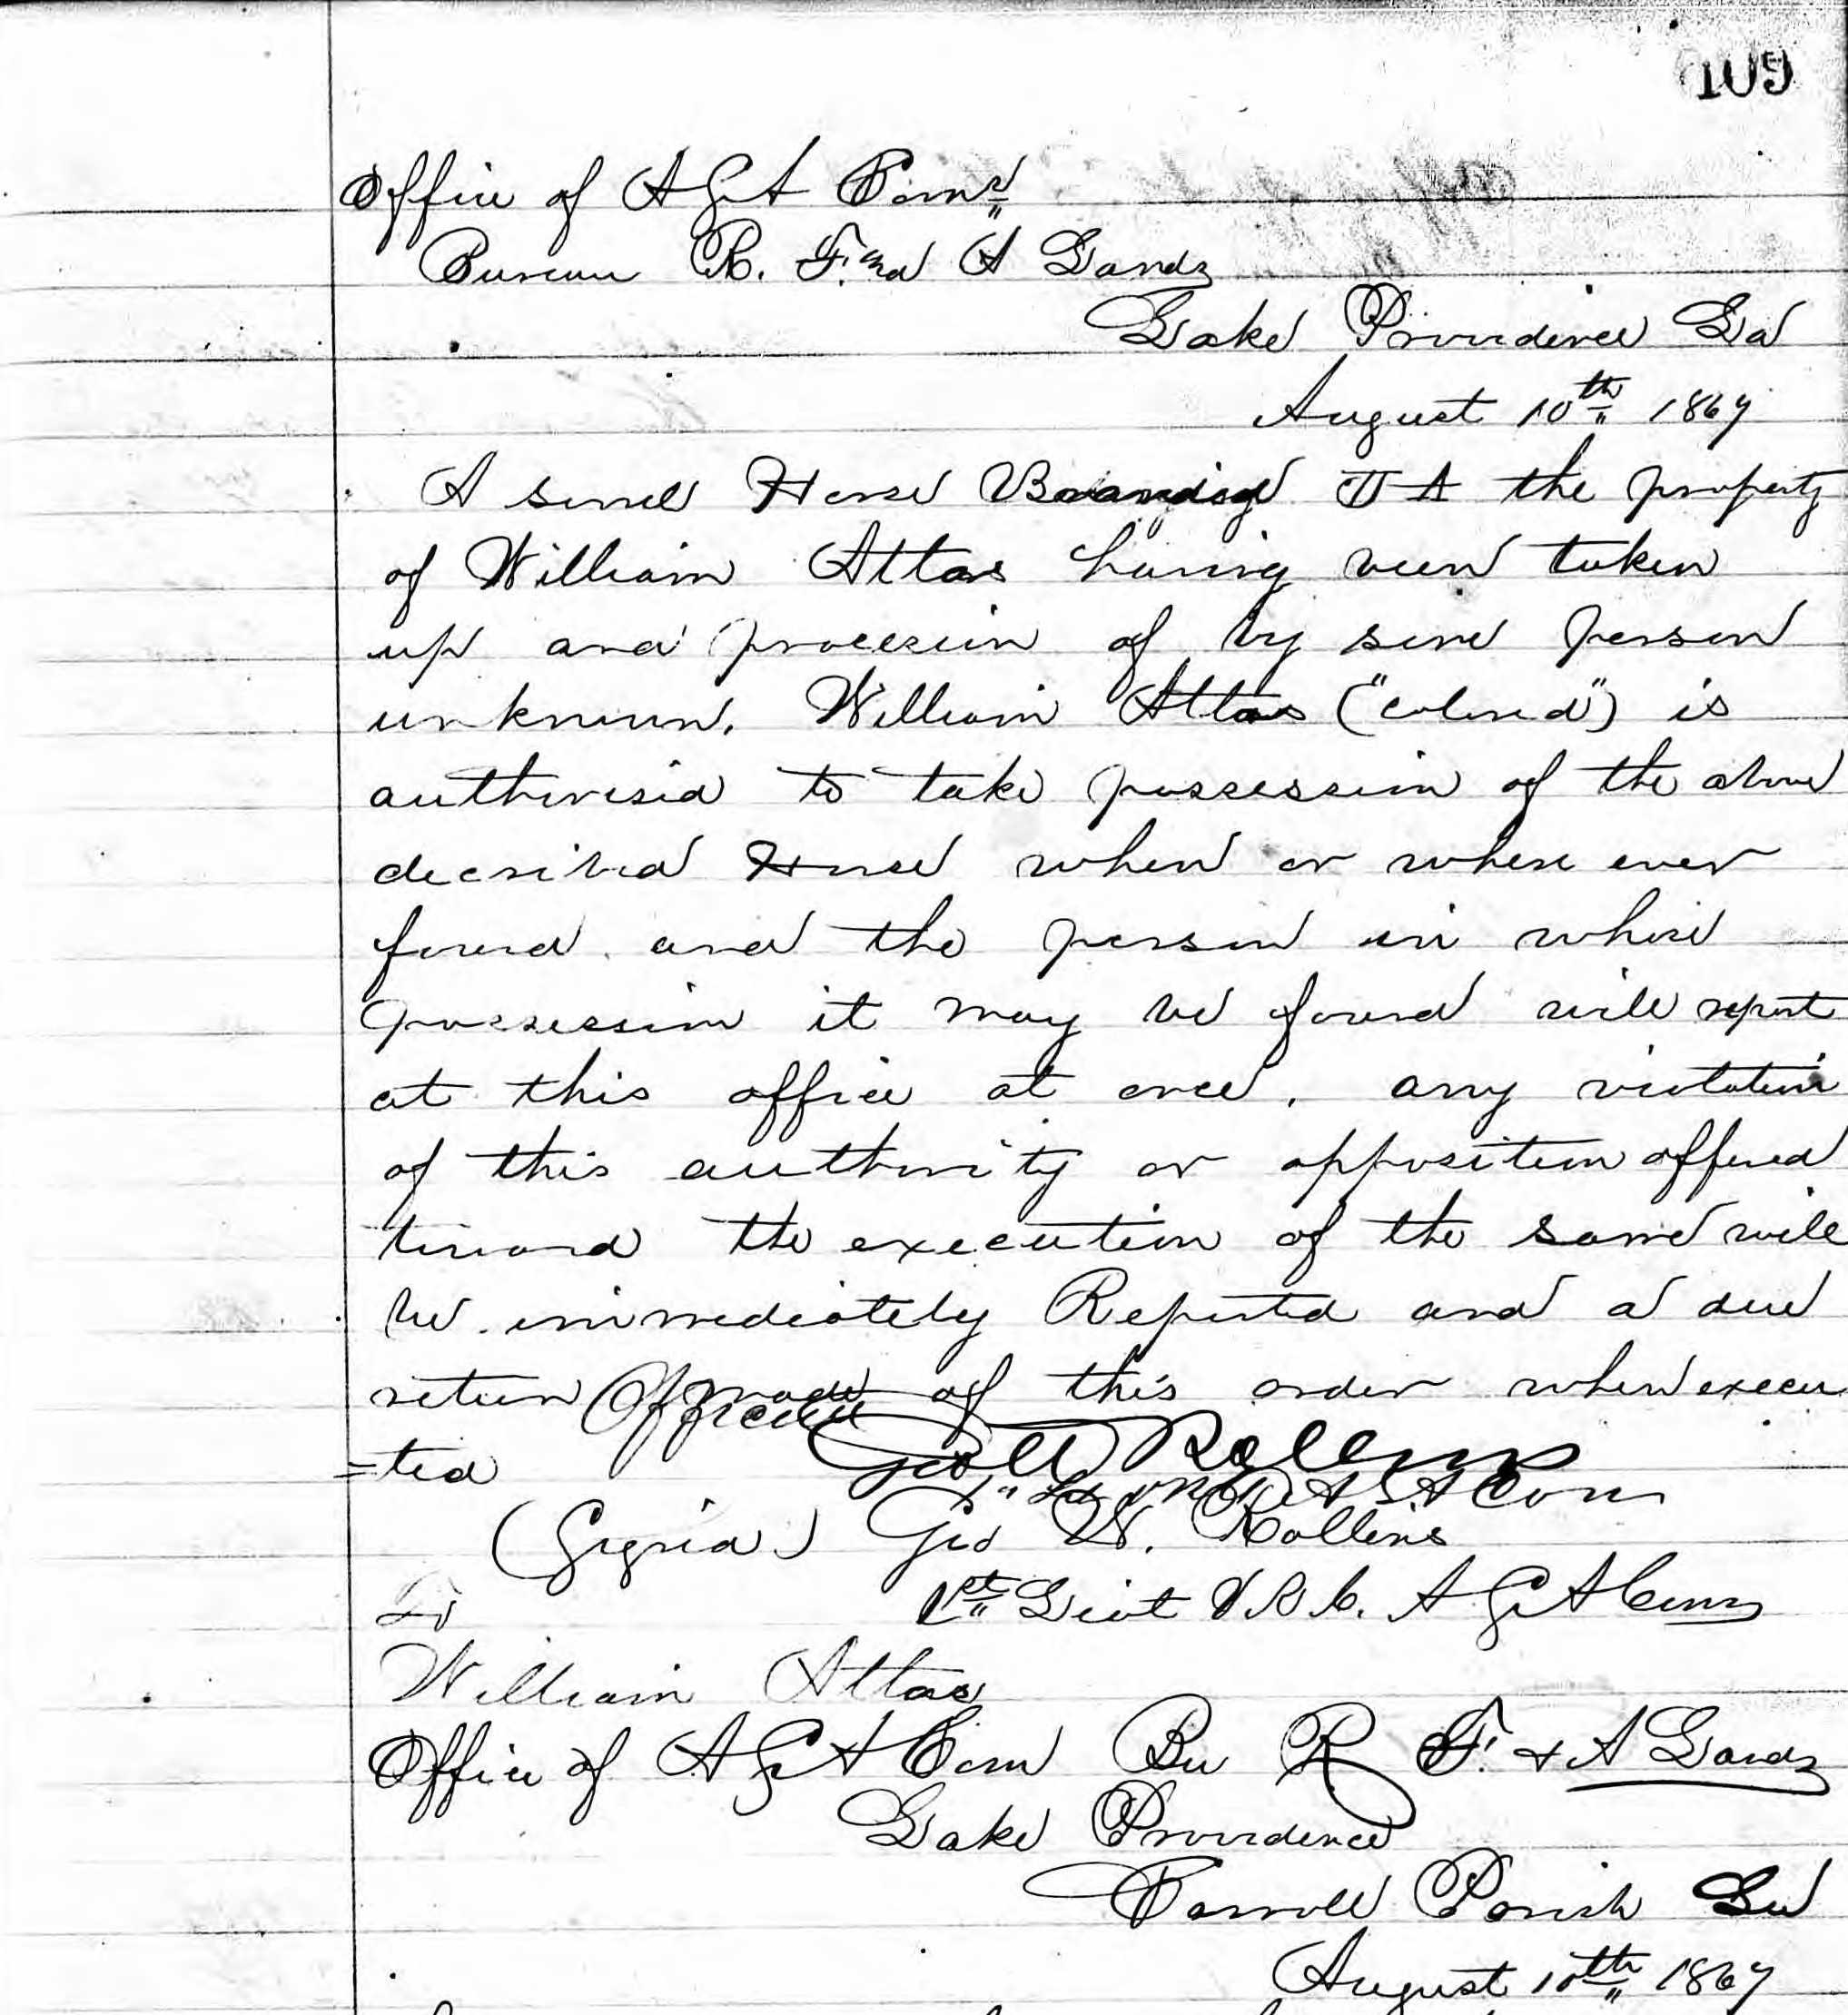 109
Office of A S A Comr
Bureau R. F. and A Lands
Lake Providence La
August 10th 1867
A sorrel Horse Branded the property
of William Attas having been taken
up and procession of by some person
unknown. William Attas ("colored") is
authorised to take possession of the above
described Horse when or where ever
found and the person in whose
possession it may be found will report
at this office at once, any violation
of this authority or opposition offered
toward the execution of the same will
be immediately Reported and a due
return made of this order when execu
=ted
Official
Geo W Rollins
1" Lt V R C A S A Com
(Signed) Geo W. Rollins
1st Lieut V. R. C. A S A Comr
To
William Attas
Office of A S A Com Bu R F. & A Lands
Lake Providence
Carroll Parish La
August 10th 1867